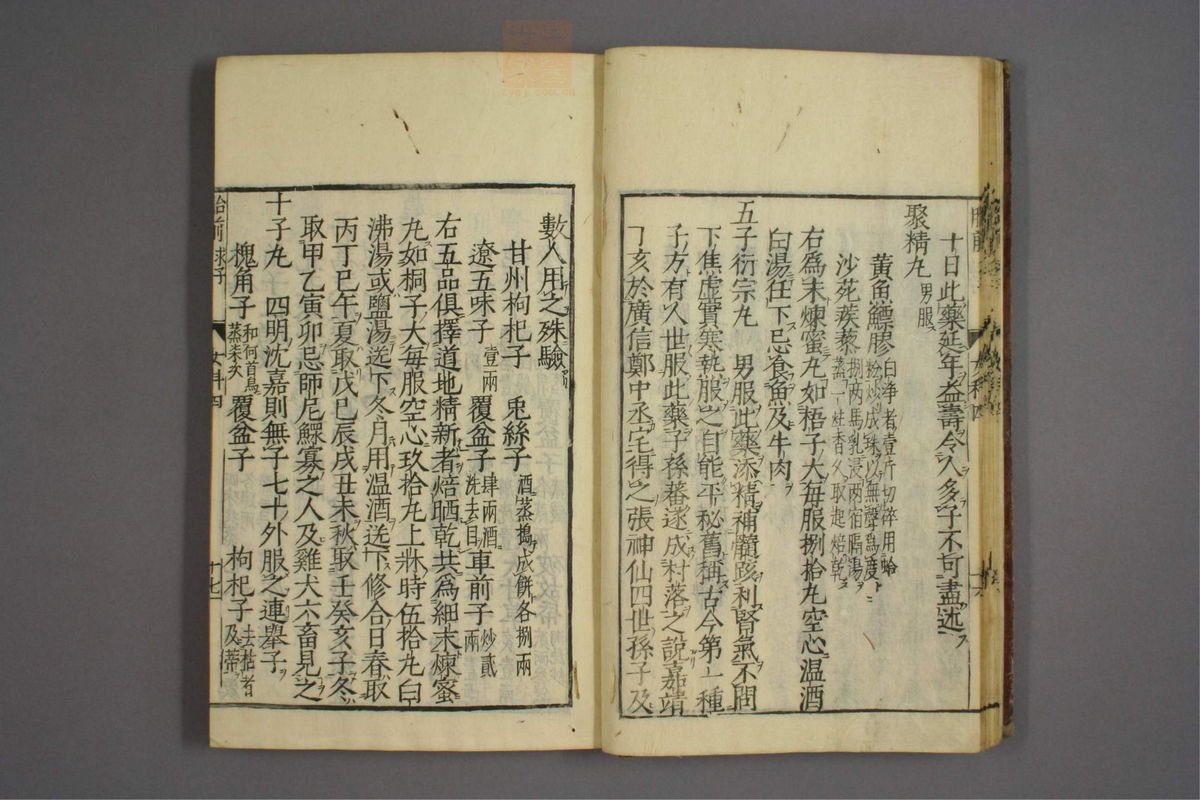 十日此藥延年益壽令人多子不可盡述
聚精丸 男服
黃魚鰾膠 白淨者壹斤切碎用蛤粉炒成珠以無聲為度
沙苑蒺藜 捌兩馬乳浸兩宿隔湯蒸一炷香久取起焙乾
右為末煉蜜丸如梧子大每服捌拾丸空心溫酒
白湯任下忌食魚及牛肉
五子衍宗丸 男服此藥添精補髓疏利腎氣不問
下焦虛實寒熱服之自能平秘舊稱古今第一種
子方有人世服此藥子孫蕃遂成村落之說嘉靖
丁亥於廣信鄭中丞宅得之張神仙四世孫子及
數人用之殊驗
甘州枸杞子 兎絲子 酒蒸搗成餅各捌兩
遼五味子 壹兩 覆盆子 肆兩酒洗去目 車前子 炒貳兩
右五品俱擇道地精新者焙晒乾共為細末煉蜜
丸如桐子大每服空心玖拾丸上牀時伍拾丸白
沸湯或鹽湯送下冬月用溫酒送下修合日春取
丙丁巳午夏取戊己辰戌丑未秋取壬癸亥子冬
取甲乙寅卯忌師尼鰥寡之人及雞犬六畜見之
十子丸 四明沈嘉則無子七十外服之連舉子
槐角子 和何首烏蒸柒次 覆盆子 枸杞子 去枯者及蒂
女科四
十七